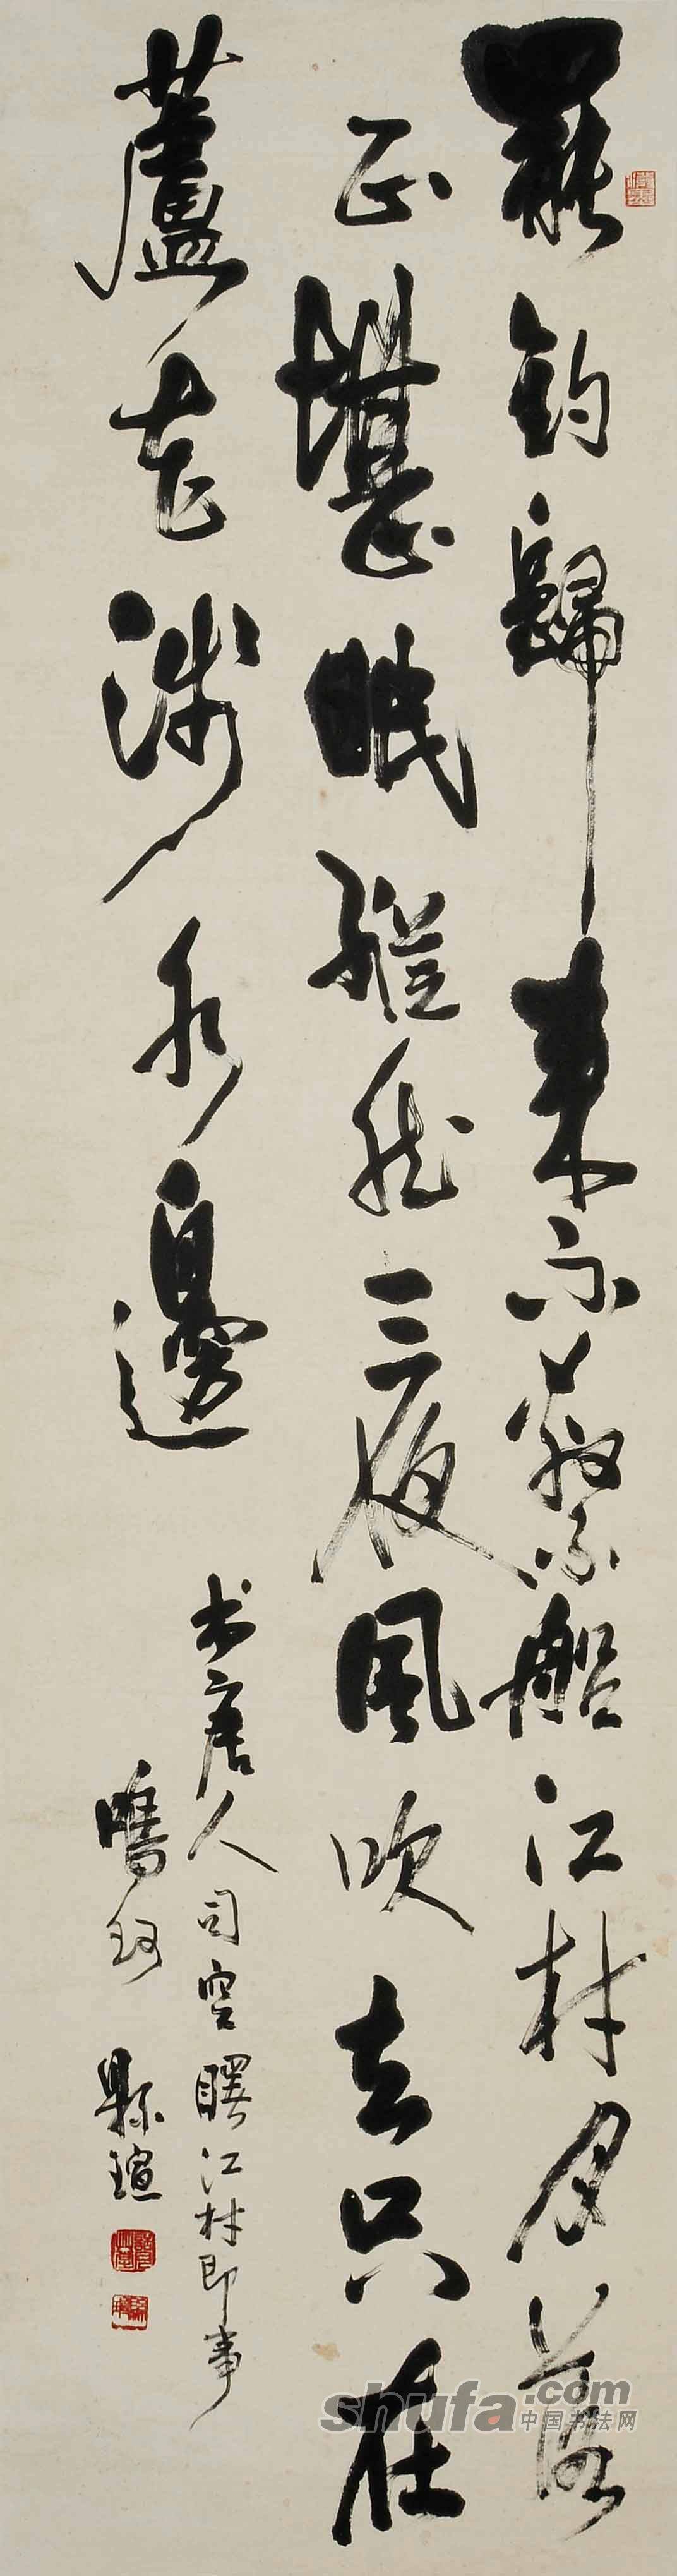 罷釣歸來不繫船江村月落
正堪眠縱然一夜風吹去只在
蘆花淺水邊
书唐人司空曙江村即事
shufa.com
中国书法网